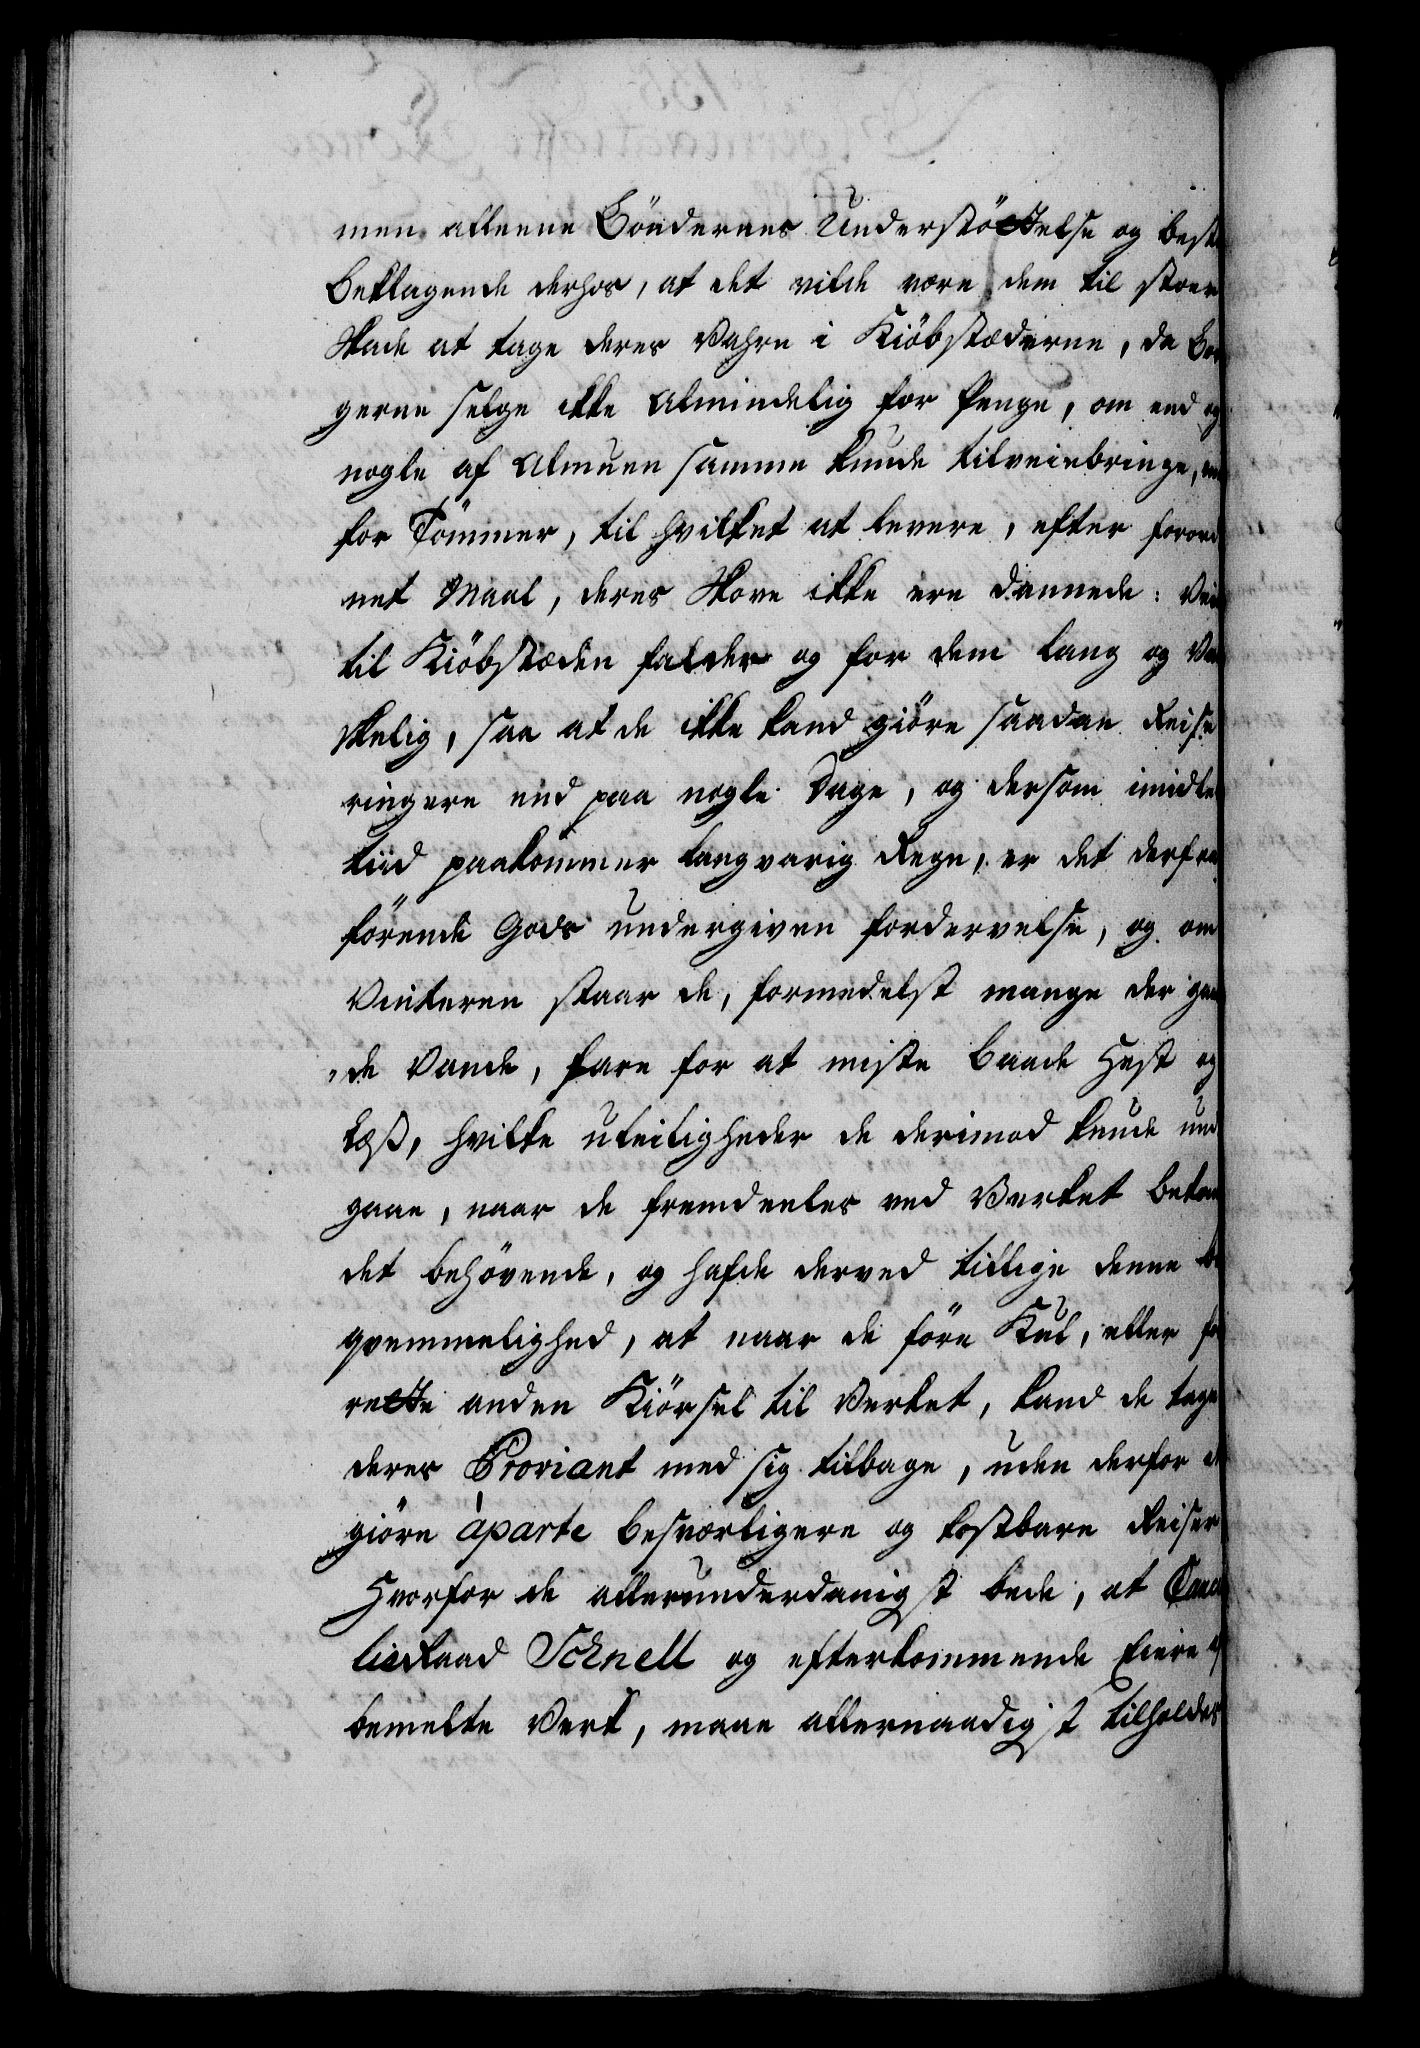 men alleene Böndernes Understöttelse og beste
Beklagende derhos, at det vilde være dem til stoer
Skade at tage deres Vahre i Kiöbstæderne, da Bor
gerne selge ikke Almindelig for Penge, om end og
nogle af Almuen samme kunde tilveiebringe, men
for Tömmer, til hvilket at levere, efter forord
net Maal, deres Skove ikke ere dannede: Vei
til Kiöbstæden falder og for dem lang og Van
skelig, saa at de ikke kand giöre saadan Reise
ringere end paa nogle Dage, og dersom imidler
tiid paakommer langvarig Regn, er det derfra
förende Gods undergiven fordervelse, og om
Vinteren staar de, formedelst mange der igaaen
de Vande, fare for at miste baade Hest og
læß, hvilke uleiligheder de derimod kunde und
gaae, naar de fremdeeles ved Verket bekom
det behövende, og hafde derved tillige denne be
qvemmelighed, at naar de före Kul, eller for
rette anden Kiörsel til Verket, kand de tage
deres Proviant med sig tilbage, uden derfor at
giöre àparte besværligere og kostbare Reiser
Hvorfor de allerunderdanigst bede, at Cancel
lieRaad Schnell og efterkommende Eiere af
bemelte Verk, maae allernaadigst tilholdes